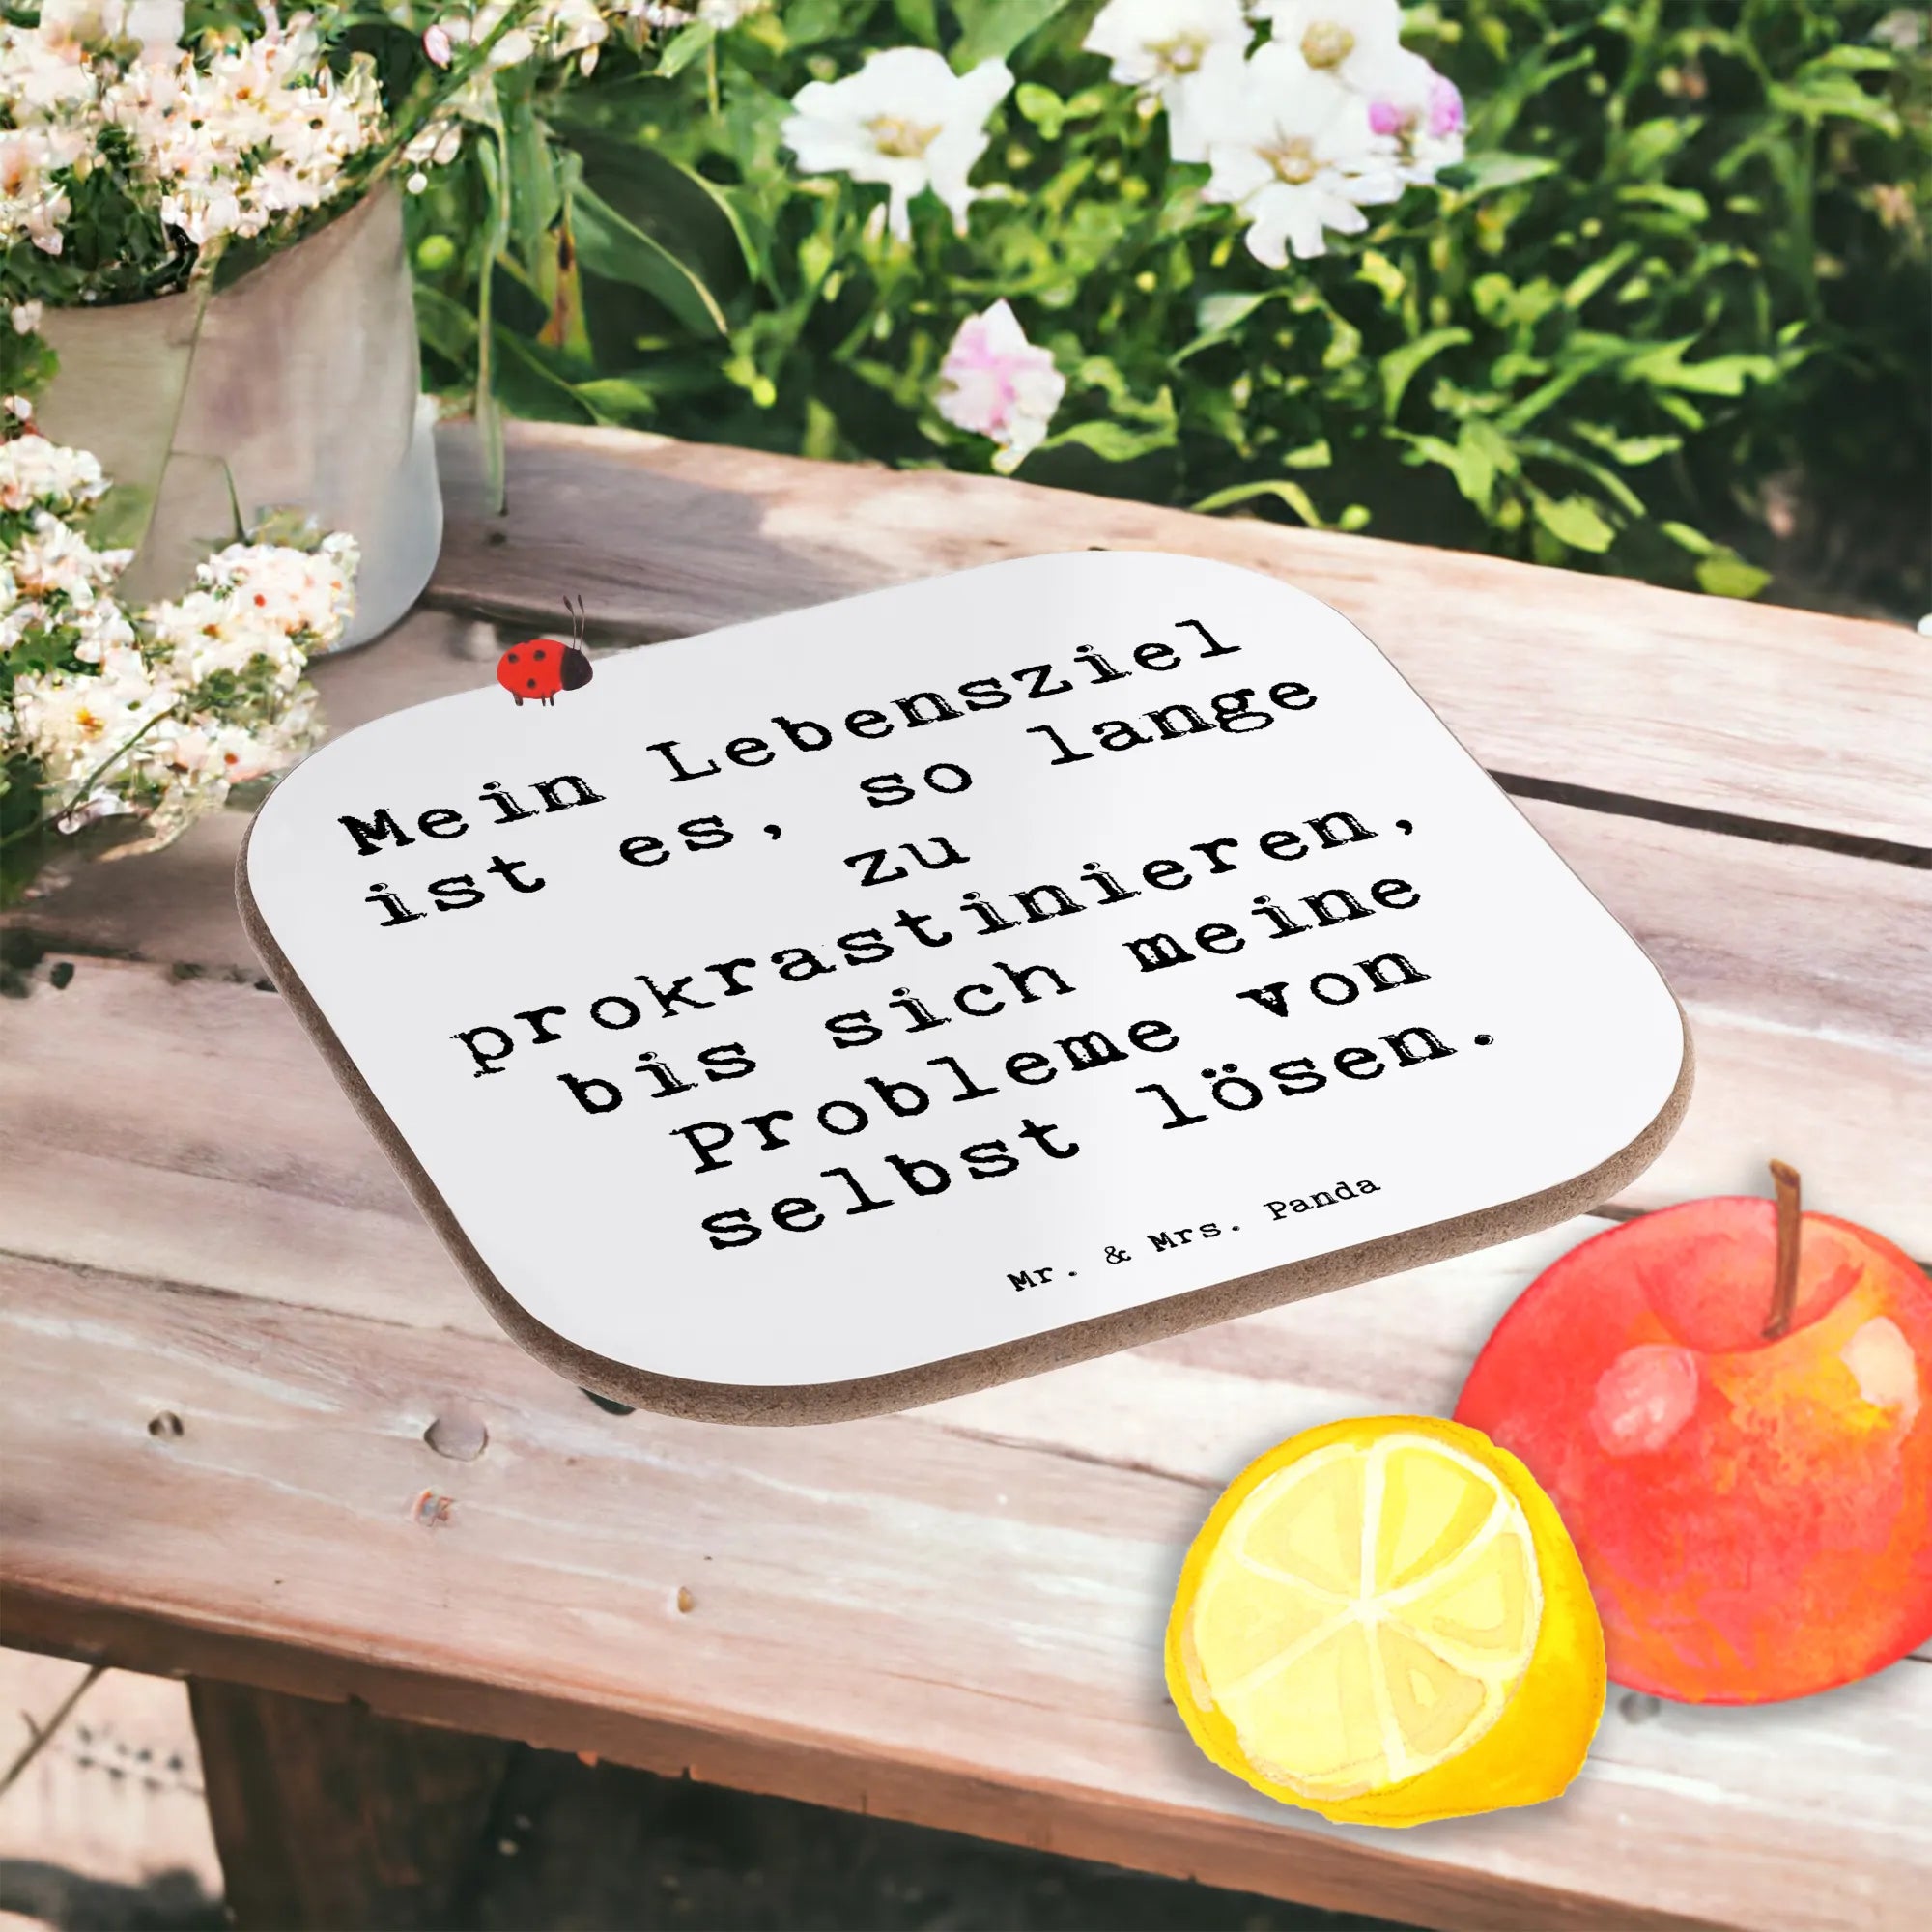 Mein Lebensziel
ist es, so lange
zu
prokrastinieren,
bis sich meine
Probleme von
selbst lösen.
Mr. & Mrs. Panda